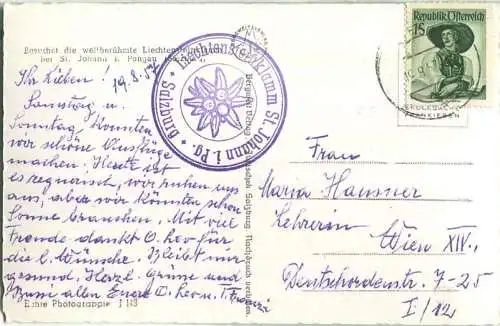 Besuchet die weltberühmte Liechtensteinklamm
bei St. Johann i. Pongau
19.8.57
Ihr Lieben!
Samstag u.
Sonntag konnten
wir schöne Ausflüge
machen. Heute ist
es regnerisch, wir ruhen uns
aus, aber wir könnten schon
Sonne brauchen. Mit viel
Freude dankt O. Leo für
die l. Wünsche. Bleibt nur
gesund. Herzl. Grüße und
Bussi allen Euer O. Leo u. T. Franzi
Echte Photographie
Liechtensteinklamm St. Johann i. Pg. Salzburg
Republik Österreich
1S
Frau
Maria Hausner
Lehrerin
Wien XIV.,
Deutschordenstr. 7-25
I/12